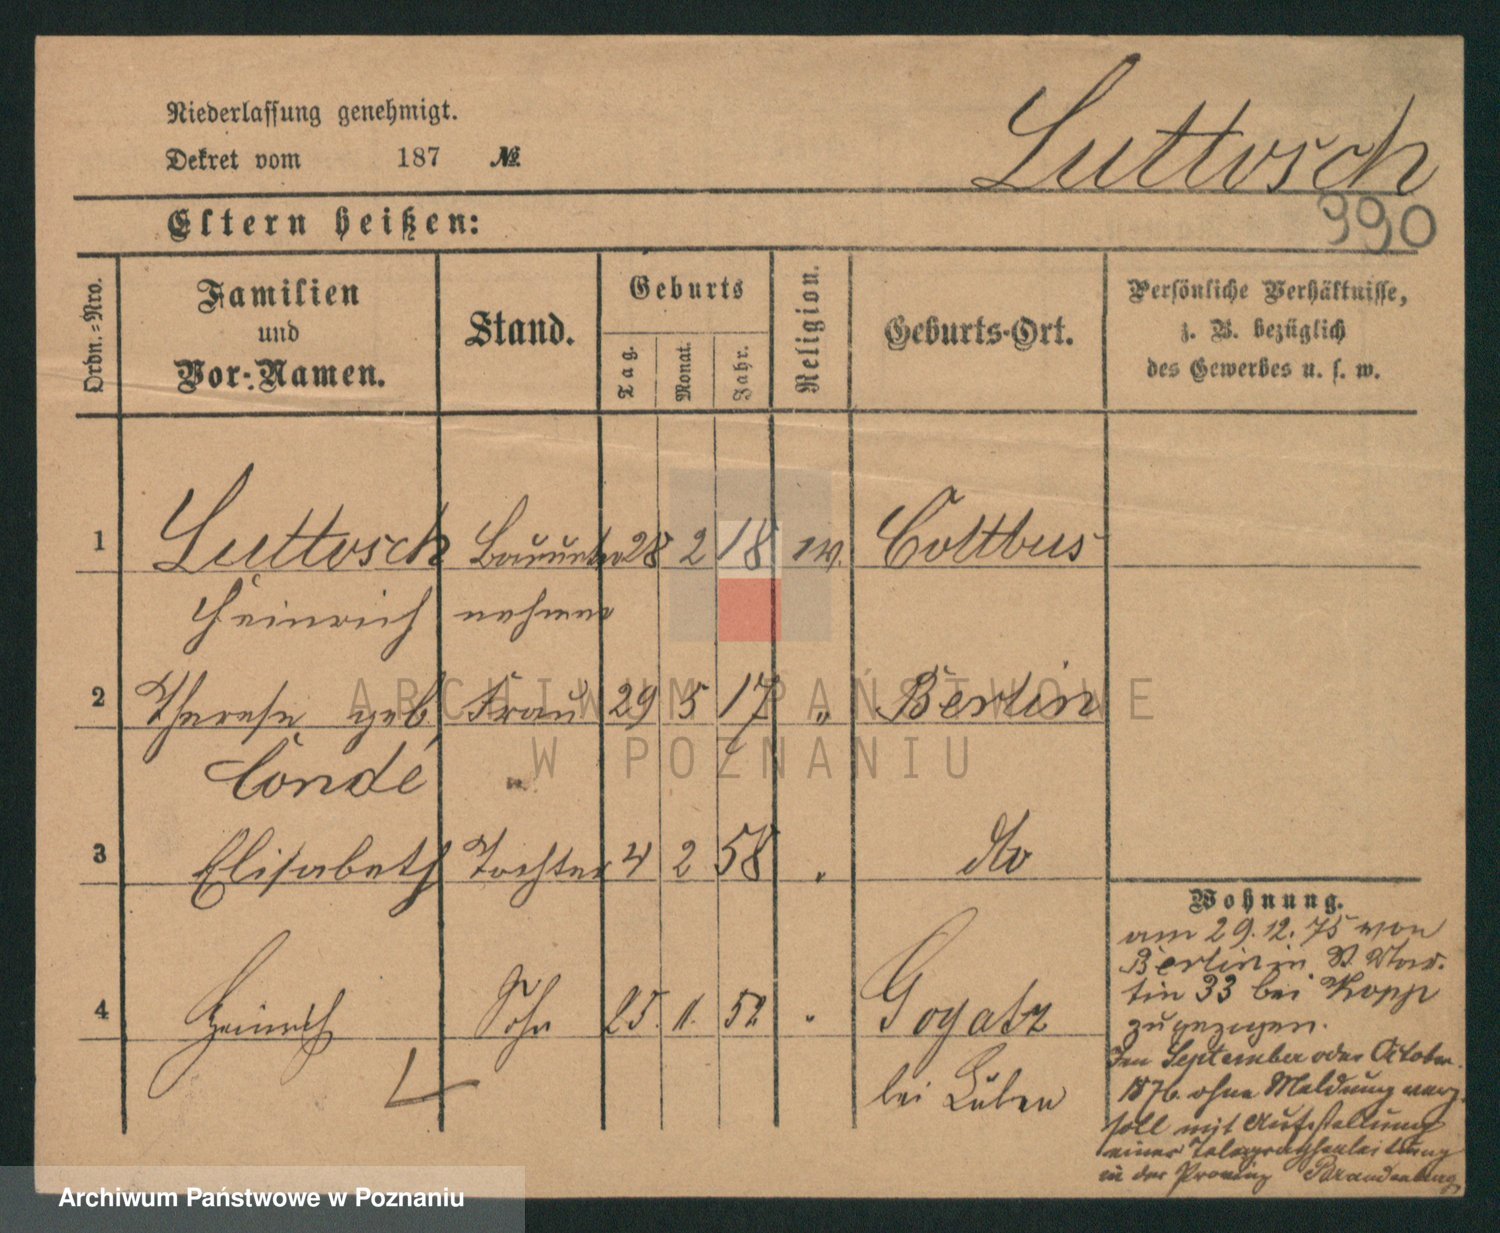 Niederlassung genehmigt.
Dekret vom 187 №
Luttosch
990
Eltern heißen:
Ordn.-Nro.
Familien und Vor-Namen.
Stand.
Geburts
Tag.
Monat.
Jahr.
Religion.
Geburts-Ort.
Persönliche Verhältnisse,
z. B. bezüglich
des Gewerbes u. s. w.
1 Luttosch Bauunter 28 2 18 ev. Cottbus
Heinrich nehmer
2 Therese geb. Frau 29 5 17 " Berlin
Condé
3 Elisabeth Tochter 4 2 58 " dto
4 Heinrich Sohn 25. 11. 52 " Gogatz
bei Lüben
Wohnung.
am 29.12.75 von
Berlin in St Mar.
tin 33 bei Kopp
zugezogen.
Im September oder October
1876 ohne Meldung verz.
soll mit Aufstellung
einer Telegraphenleitung
in der Provinz Brandenburg
ARCHIWUM PAŃSTWOWE
W POZNANIU
Archiwum Państwowe w Poznaniu